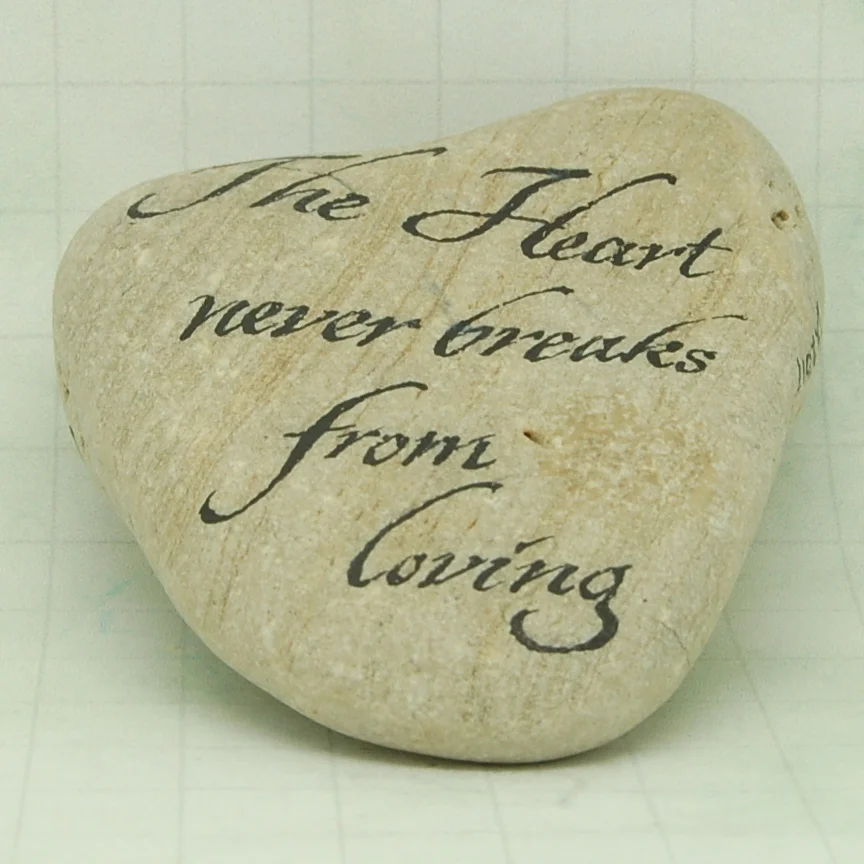 The Heart
never breaks
from
loving